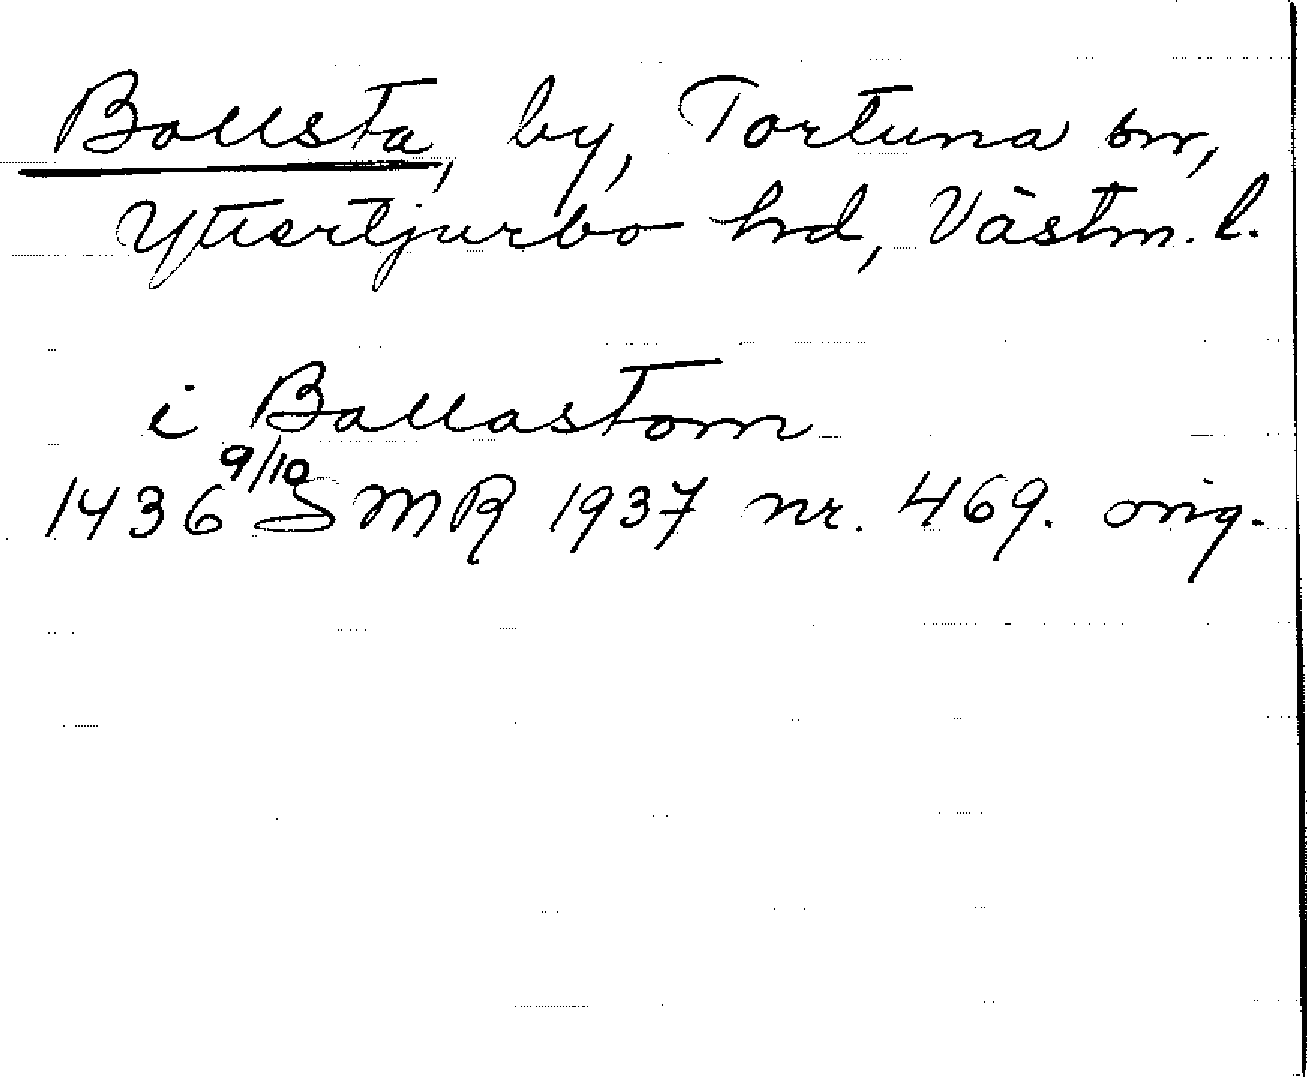 Bollsta, by, Tortuna sn,
Yttertjurbo hrd, Västm. l.
i Ballastom
1436 9/10 SMR 1937 nr. 469. orig.